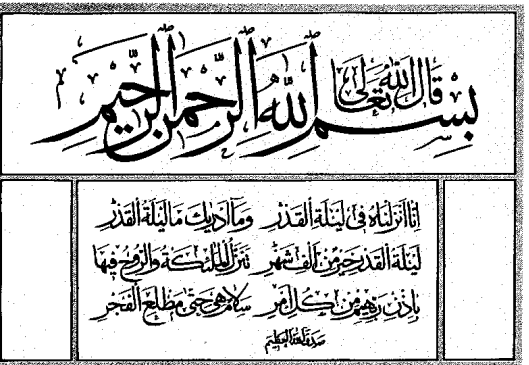 قال الله تعالى
بسم الله الرحمن الرحيم
إنا أنزلناه في ليلة القدر وما أدريك ما ليلة القدر
ليلة القدر خير من ألف شهر تنزل الملئكة والروح فيها
بإذن ربهم من كل أمر سلام هي حتى مطلع الفجر
صدق الله العظيم